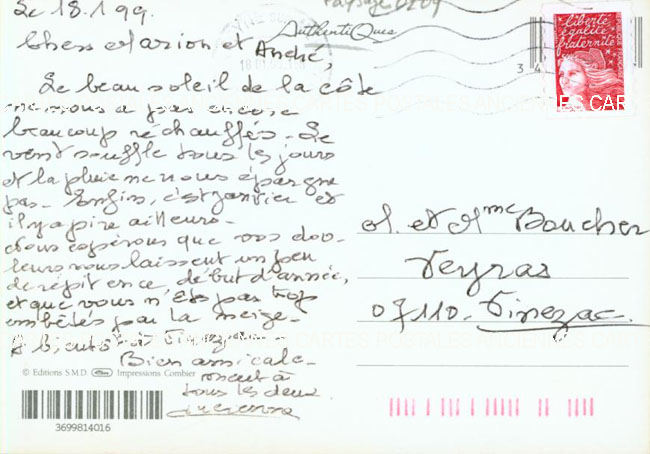 Le 18.1 99.
Chers Marion et André,
Le beau soleil de la côte
ne nous a pas encore
beaucoup réchauffés. Le
vent souffle tous les jours
et la pluie ne nous épargne
pas. Enfin, c'est janvier et
il y a pire ailleurs.
Nous espérons que vos dou-
leurs vous laissent un peu
de répit en ce, début d'année,
et que vous n'êtes pas trop
embêtés par la neige.
A bientôt à
Bien amicale-
ment à
tous les deux
Lucienne
Paysage
AuthentiQues
liberté
égalité
fraternité
CARTES POSTALES ANCIENNES CAR
M. et Mme Boucher
Veyras
07110 - Vinezac
CARTES POSTALES ANCIENNES CAR
© Editions S.M.D. Impressions Combier
3699814016